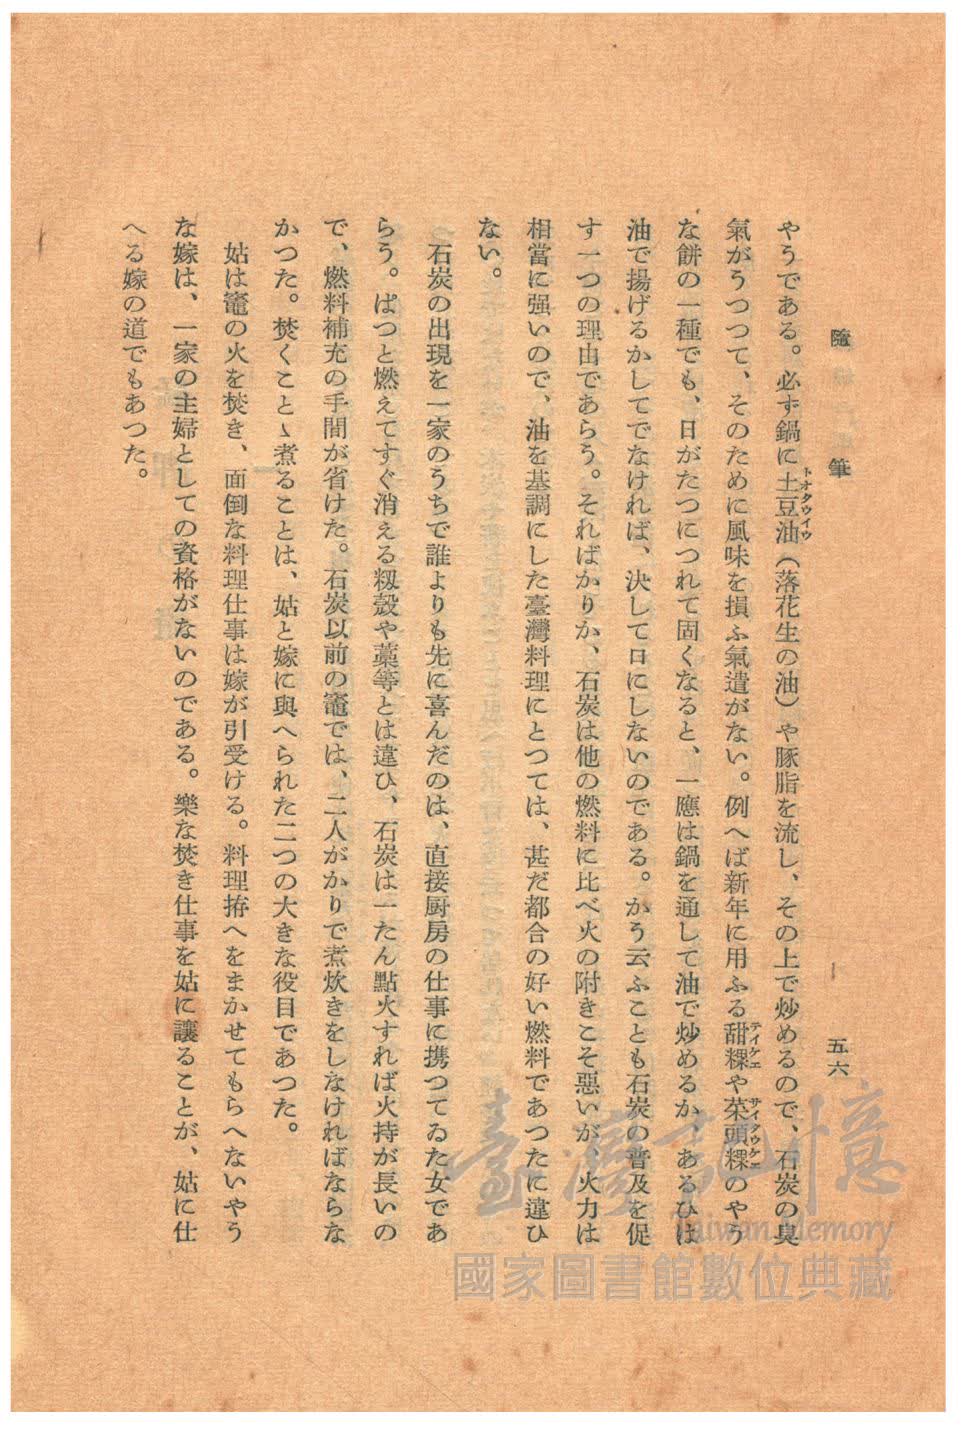 隨筆 — 五六
やうである。必ず鍋に土豆油(落花生の油)や豚脂を流し、その上で炒めるので、石炭の臭
トオタウイウ
氣がうつつて、そのために風味を損ふ氣遣がない。例へば新年に用ふる甜粿や菜頭粿のやう
テイケエ サイタウケエ
な餅の一種でも、日がたつにつれて固くなると、一應は鍋を通して油で炒めるか、あるひは
油で揚げるかしてでなければ、決して口にしないのである。かう云ふことも石炭の普及を促
す一つの理由であらう。そればかりか、石炭は他の燃料に比べ火の附きこそ惡いが、火力は
相當に强いので、油を基調にした臺灣料理にとつては、甚だ都合の好い燃料であつたに違ひ
ない。
石炭の出現を一家のうちで誰よりも先に喜んだのは、直接厨房の仕事に携つてゐた女であ
らう。ぱつと燃えてすぐ消える籾殼や藁等とは違ひ、石炭は一たん點火すれば火持が長いの
で、燃料補充の手間が省けた。石炭以前の竈では、二人がかりで煮炊きをしなければならな
かつた。焚くことゝ煮ることは、姑と嫁に與へられた二つの大きな役目であつた。
姑は竈の火を焚き、面倒な料理仕事は嫁が引受ける。料理拵へをまかせてもらへないやう
な嫁は、一家の主婦としての資格がないのである。樂な焚き仕事を姑に讓ることが、姑に仕
へる嫁の道でもあつた。
臺灣記憶
Taiwan Memory
國家圖書館數位典藏